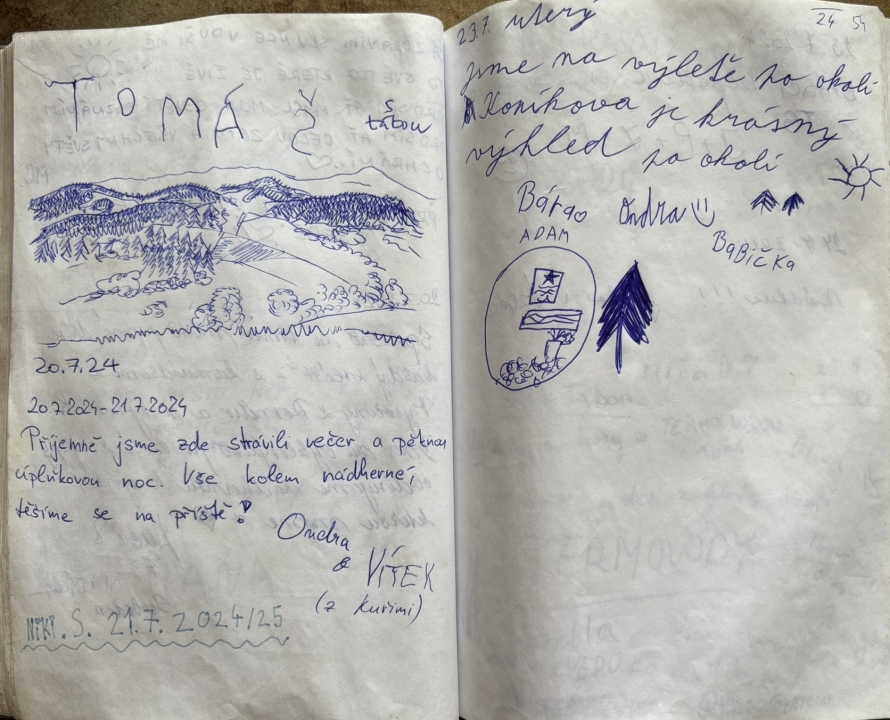 TOMÁŠ
s
tátou
20.7.24
20.7.2024-21.7.2024
Příjemně jsme zde strávili večer a pěknou
úplňkovou noc. Vše kolem nádherné,
těšíme se na příště!
Ondra
a VÍTEK
(z Kuřimi)
NIKI. S. 21.7.2024/25
23.7. úterý
24 54
jsme na výletě po okolí
Koníkova je krásný
výhled po okolí
Bára
Ondra
ADAM
Babička